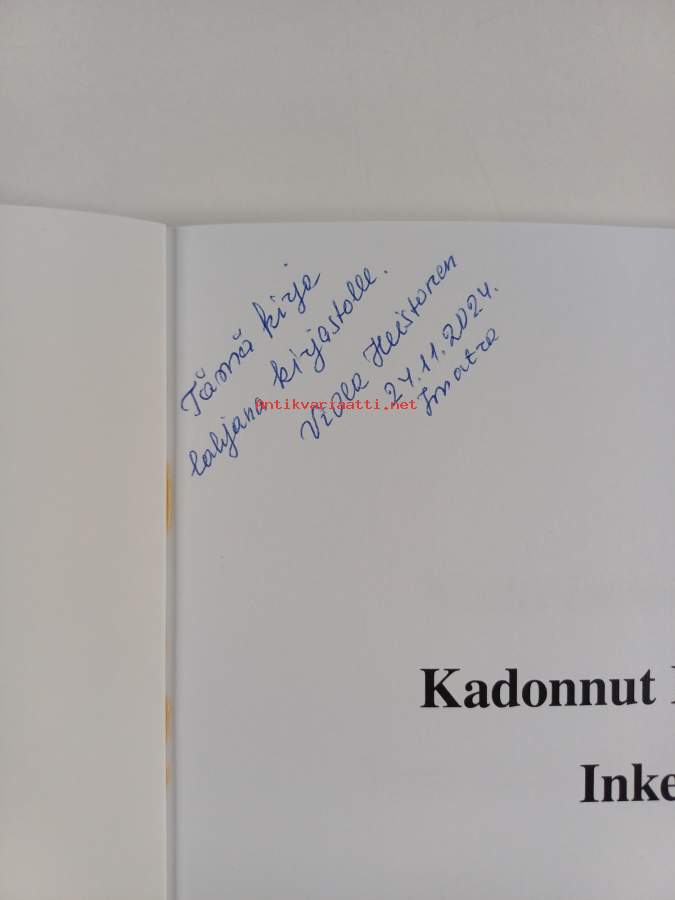 Tämä kirja
lahjana kirjastolle.
Viola Heistonen
24.11.2024.
Imatra
Antikvariaatti.net
Kadonnut
Inke